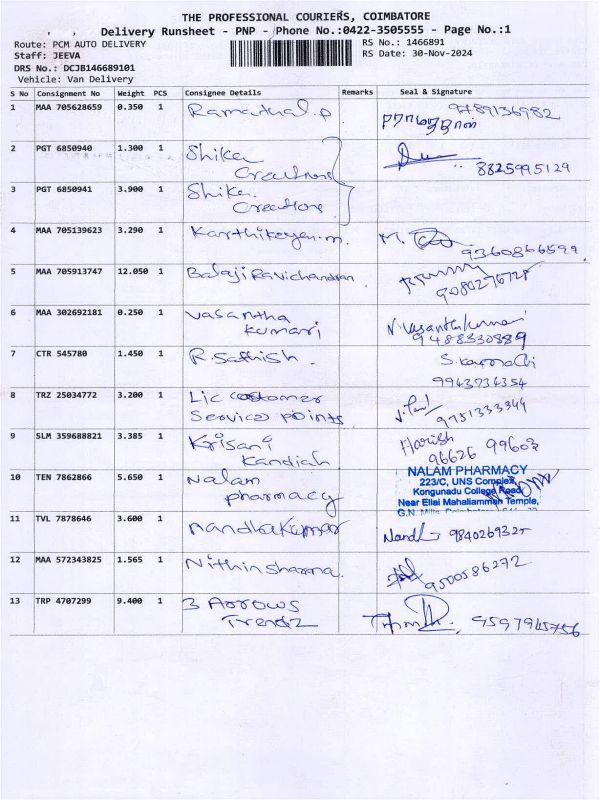 THE PROFESSIONAL COURIERS, COIMBATORE
Delivery Runsheet - PNP - Phone No.:0422-3505555 - Page No.:1
Route: PCM AUTO DELIVERY
RS No.: 1466891
Staff: JEEVA
RS Date: 30-Nov-2024
DRS No.: DCJB146689101
Vehicle: Van Delivery
S No Consignment No Weight PCS Consignee Details Remarks Seal & Signature
1 MAA 705628659 0.350 1 Ramathal.p 9789136982
2 PGT 6850940 1.300 1 Shika
Creations 8825995129
3 PGT 6850941 3.900 1 Shika
Creations
4 MAA 705139623 3.290 1 Karthikeyan.m. 9360866599
5 MAA 705913747 12.050 1 Balaji Ravichandran 9080276728
6 MAA 302692181 0.250 1 Vasantha N. Vasanthakumari
Kumari 9488330889
7 CTR 545780 1.450 1 R Sathish.
9943734354
8 TRZ 25034772 3.200 1 Lic customer
Service points 9751333344
9 SLM 359688821 3.385 1 Krisani Harish
Kandiah 96626 99603
10 TEN 7862866 5.650 1 Nalam
pharmacy
NALAM PHARMACY
223/C, UNS Complex,
Kongunadu College Road,
Near Ellai Mahaliamman Temple,
11 TVL 7878646 3.600 1 Nandhakumar Nandh 984026932
12 MAA 572343825 1.565 1 Nithin Sharma. 9500586272
13 TRP 4707299 9.400 1 3 Arrows
Trendz 9597945756